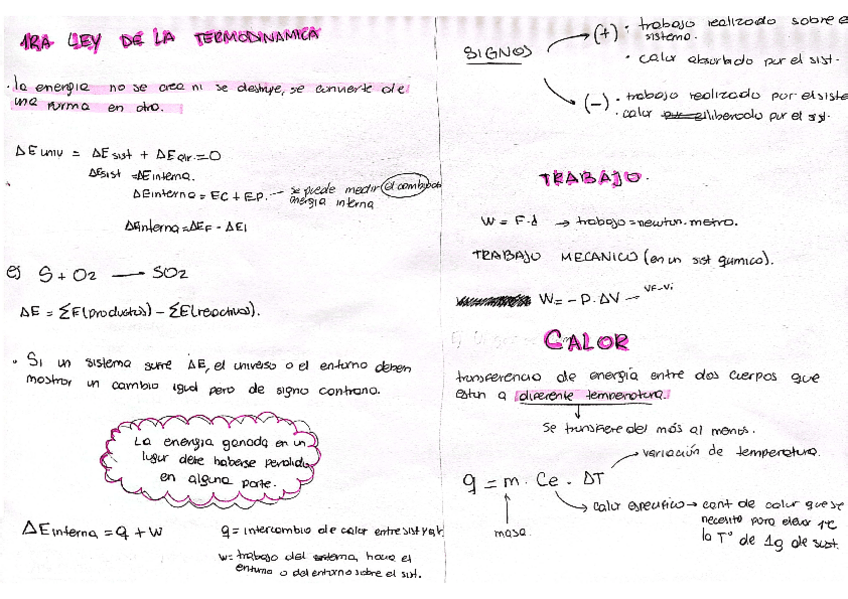 1RA LEY DE LA TERMODINAMICA
· la energia no se crea ni se destruye, se convierte de
una forma en otra.
ΔE univ = ΔE sist + ΔE alr = 0
ΔEsist = ΔE interna.
ΔE interna = EC + EP. → se puede medir el cambio de
energia interna
ΔE interna = ΔEF - ΔEI
ej S + O2 → SO2
ΔE = ΣE(productos) - ΣE(reactivos).
· Si un sistema sufre ΔE, el universo o el entorno deben
mostrar un cambio igual pero de signo contrario.
La energia ganada en un
lugar debe haberse perdido
en alguna parte.
ΔE interna = q + w
q = intercambio de calor entre sist y alr.
w = trabajo del sistema, hacia el
entorno o del entorno sobre el sist.
SIGNOS
(+) · trabajo realizado sobre e
sistema.
· calor absorbido por el sist.
(-) · trabajo realizado por el siste
· calor liberado por el sist.
TRABAJO.
W = F·d → trabajo = newton. metro.
TRABAJO MECANICO (en un sist quimico).
W = - P. ΔV → VF-Vi
CALOR
transferencia de energía entre dos cuerpos que
estan a diferente temperatura.
Se transfiere del más al menos.
q = m. Ce. ΔT
variación de temperatura.
masa.
calor especifico → cant de calor que se
necesita para elevar 1°C
la T° de 1g de sust.